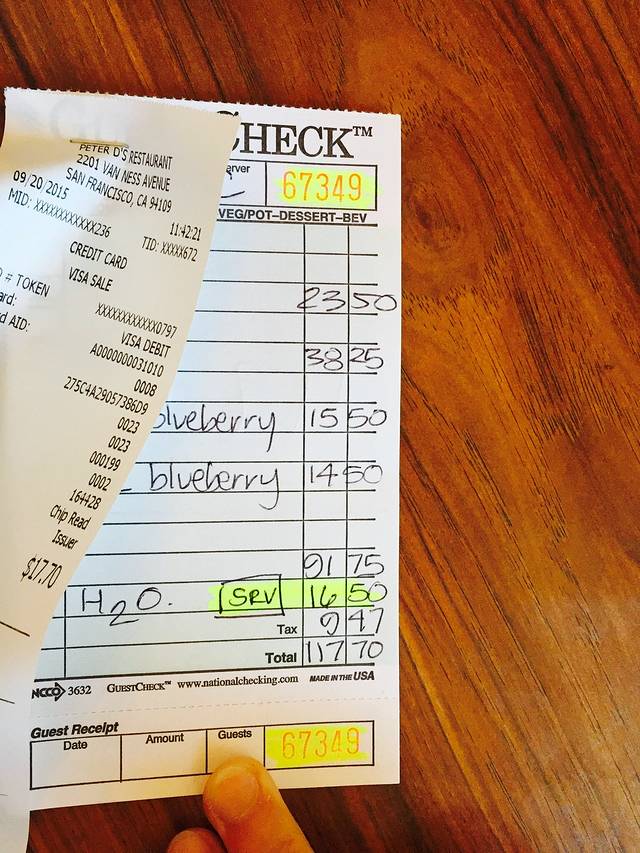 PETER D'S RESTAURANT
2201 VAN NESS AVENUE
SAN FRANCISCO, CA 94109
09/20/2015 11:42:21
MID: XXXXXXXXXXXX236 TID: XXXXX672
CREDIT CARD
VISA SALE
# TOKEN
XXXXXXXXXXXX0797
VISA DEBIT
AID: A0000000031010
0008
275C4A29057386D9
0023
0023
000199
0002
164428
Chip Read
Issuer
$17.70
CHECK™
67349
VEG/POT–DESSERT–BEV
23 50
38 25
blueberry 15 50
blueberry 14 50
91 75
H2O. SRV 16 50
Tax 9 47
Total 117 70
NCCO 3632 GUESTCHECK™ www.nationalchecking.com MADE IN THE USA
Guest Receipt
Date Amount Guests 67349